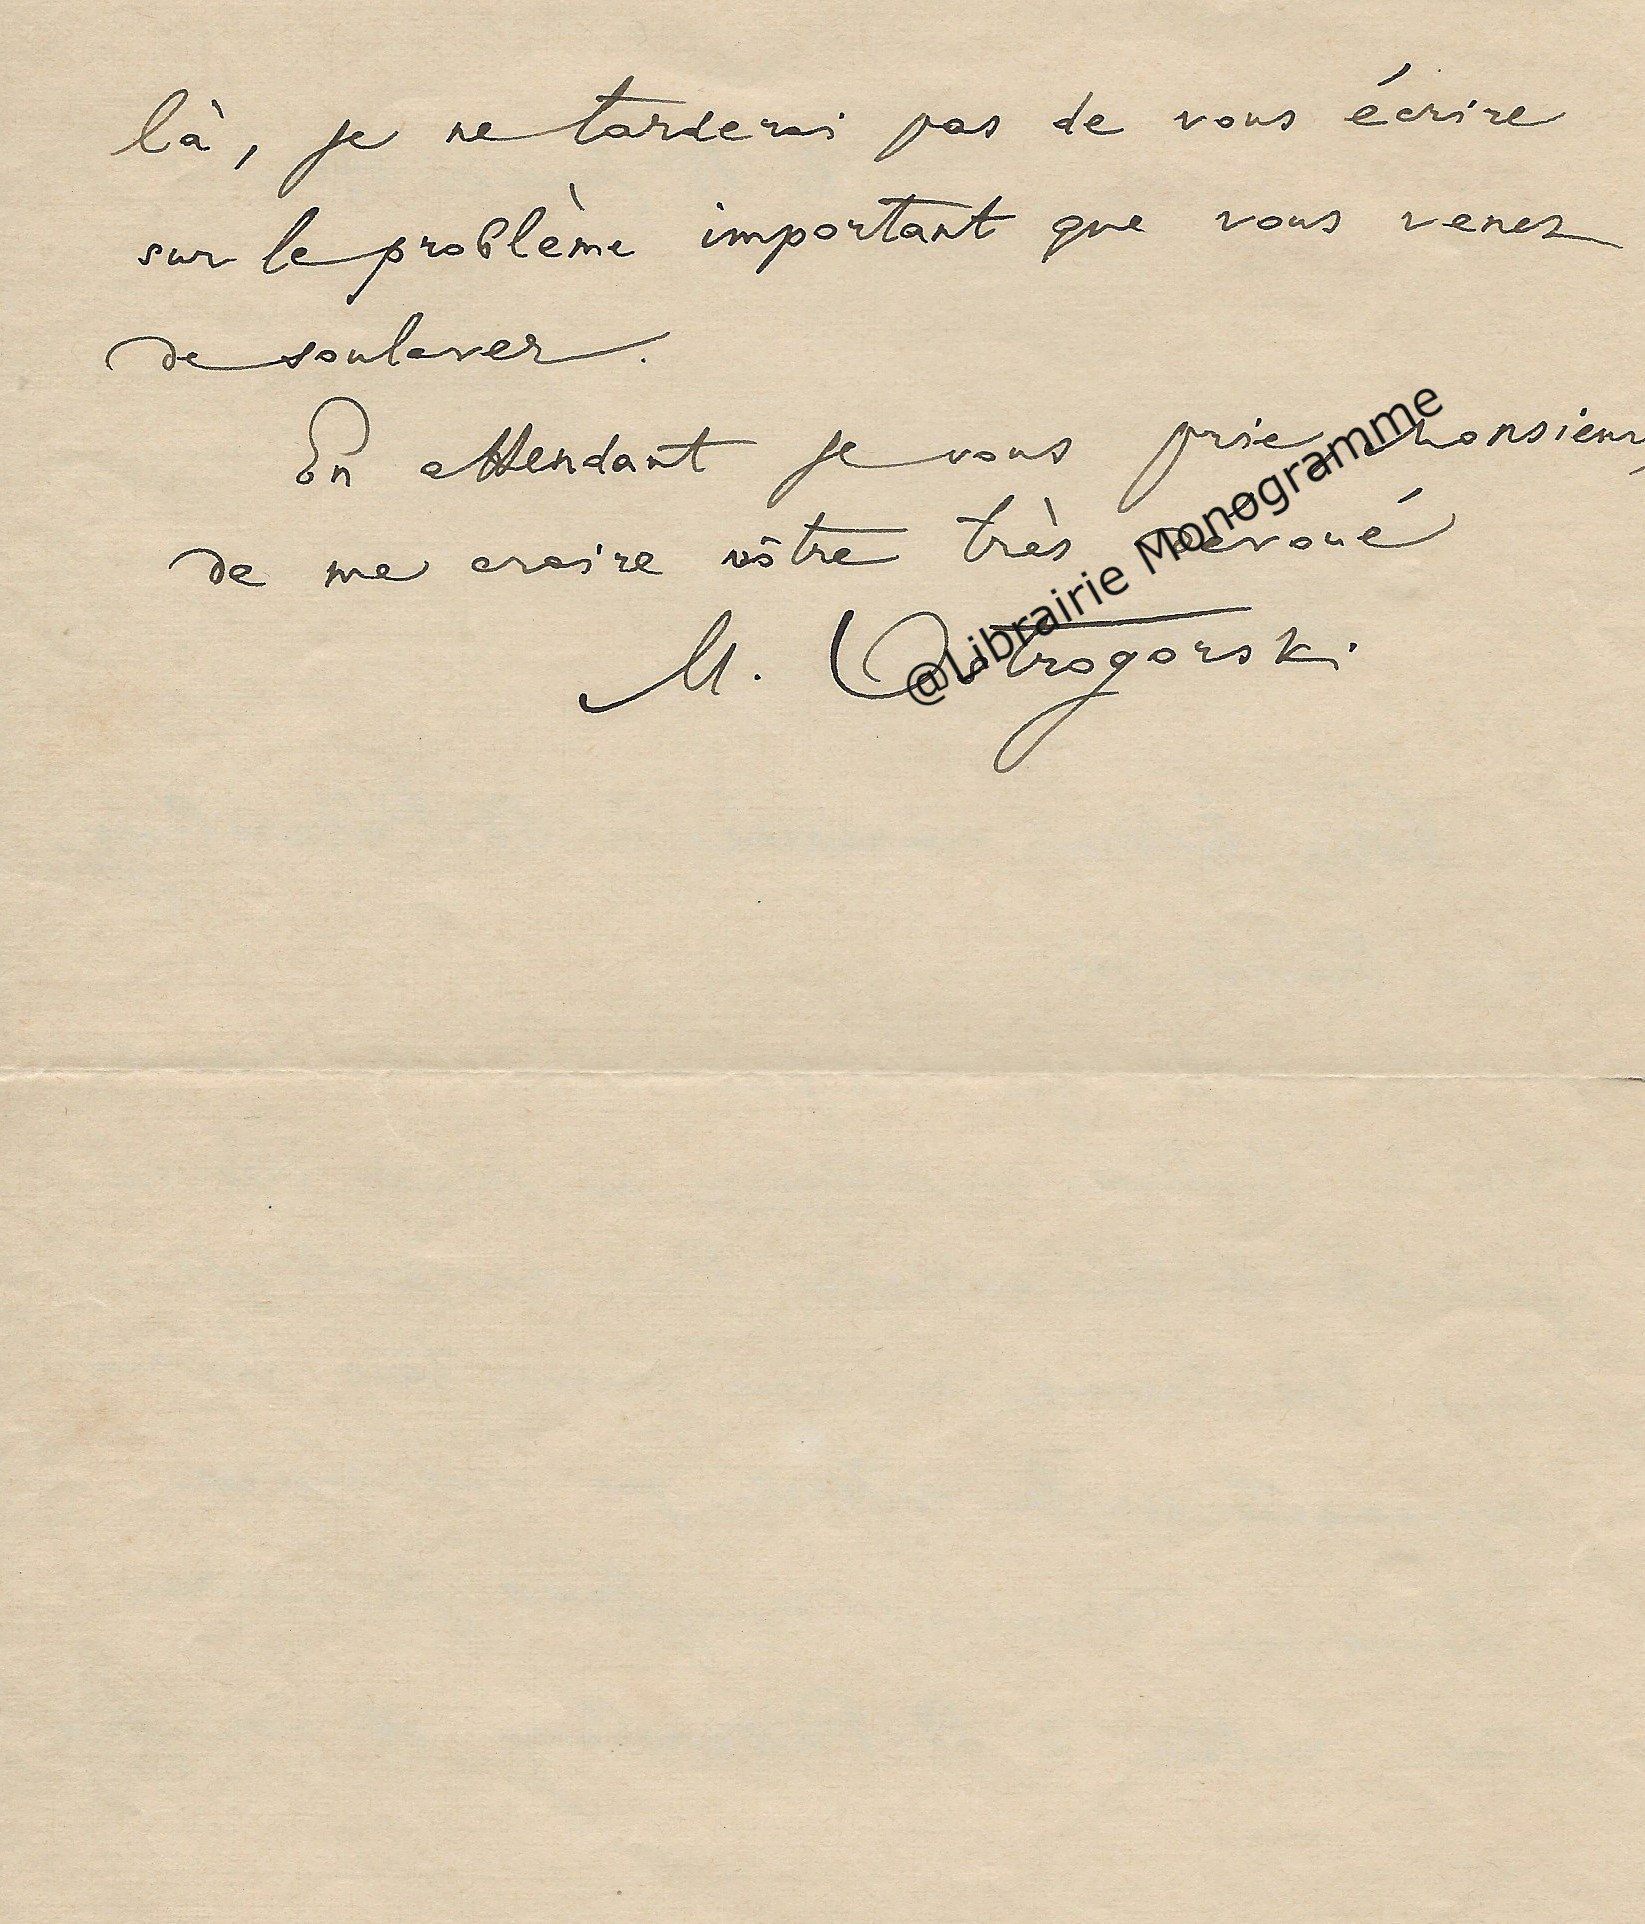 là, je ne tarderai pas de vous écrire
sur le problème important que vous venez
de soulever.
En attendant je vous prie, Monsieur,
de me croire vôtre très dévoué
M. Ostrogorski.
@Librairie Monogramme